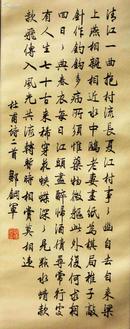 清江一曲抱村流長夏江村事々幽自去自来梁
上燕相親相近水中鷗老妻畫紙為棋局稚子敲
針作釣鈎多病所須惟藥物微軀此外復何求朝
回日々典春衣每日江頭盡醉歸酒債尋常行處
有人生七十古來稀穿花蛺蝶深々見點水蜻蜓款
款飛傳語風光共流轉暫時相賞莫相違
杜甫詩二首